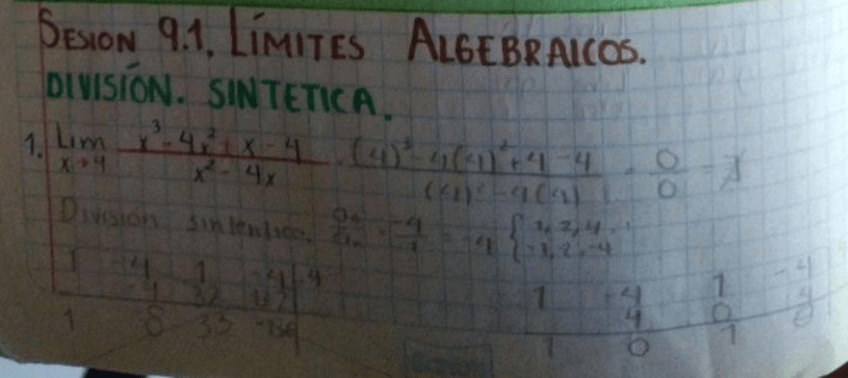 SESION 9.1. LÍMITES ALGEBRAICOS.
DIVISIÓN. SINTETICA.
1. Lim x→4 x³-4x²+x-4 / x²-4x = (4)³-4(4)²+4-4 / (4)²-4(4) = 0/0
Division sintetica. = -4 { 1, 2, 4
1 -4 1 -4 4 1 -4 1 -4
32 4 0 4
1 8 33 1 0 1 0